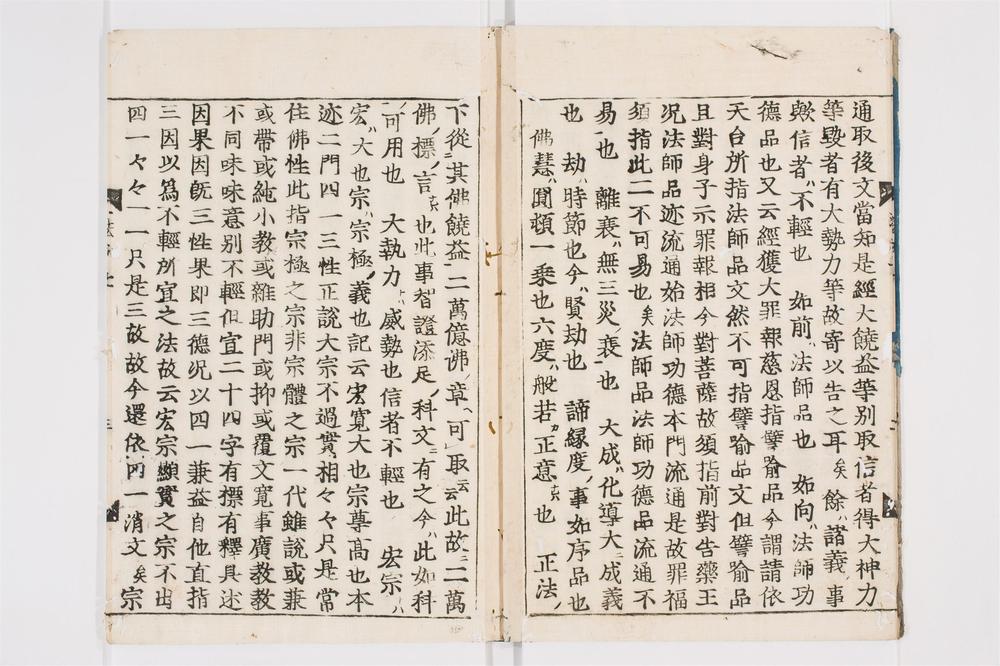 通取後文當知是經大饒益等別取信者得大神力
等毀者有大勢力等故寄以告之耳矣　餘ハ諸義ノ事
歟信者ハ不輕也　如前ハ法師品也　如向ハ法師功
德品也又云經獲大罪報慈恩指譬喻品今謂請依
天台所指法師品文然不可指譬喻品文但譬喻品
且對身子示罪報相今對菩薩故須指前對告藥王
况法師品迹流通始法師功德本門流通是故罪福
須指此二不可易也矣法師品法師功德品流通不
易ノ也　離衰ハ無三災ノ衰ノ也　大成ハ化導大ニ成義
也　劫ハ時節也今ハ賢劫也　諦緣度ノ事如序品也
佛慧ハ圓頓一乘也六度ハ般若カ正意ナ也　正法ノ
下從ニ其佛饒益ニ二萬億佛ノ章ヲ可ノ取ニ云云此故ニ二萬
佛ノ標ノ言ナ也此事智證添足ノ科文ニ有之今ハ此如科
ノ可用也　大執力ハ威勢也信者不輕也　宏宗ノ
宏ハ大也宗ハ宗極ノ義也記云宏寬大也宗尊高也本
迹二門四一三性正說大宗不過實相々々只是常
住佛性此指宗極之宗非宗體之宗一代雖說或兼
或帶或純小教或雜助門或抑或覆文寬事廣教教
不同味味意別不輕但宣二十四字有標有釋具述
因果因旣三性果即三德况以四一兼益自他直指
三因以爲不輕所宜之法故云宏宗顯實之宗不出
四一々々一一只是三故故今還依四一消文矣　宗